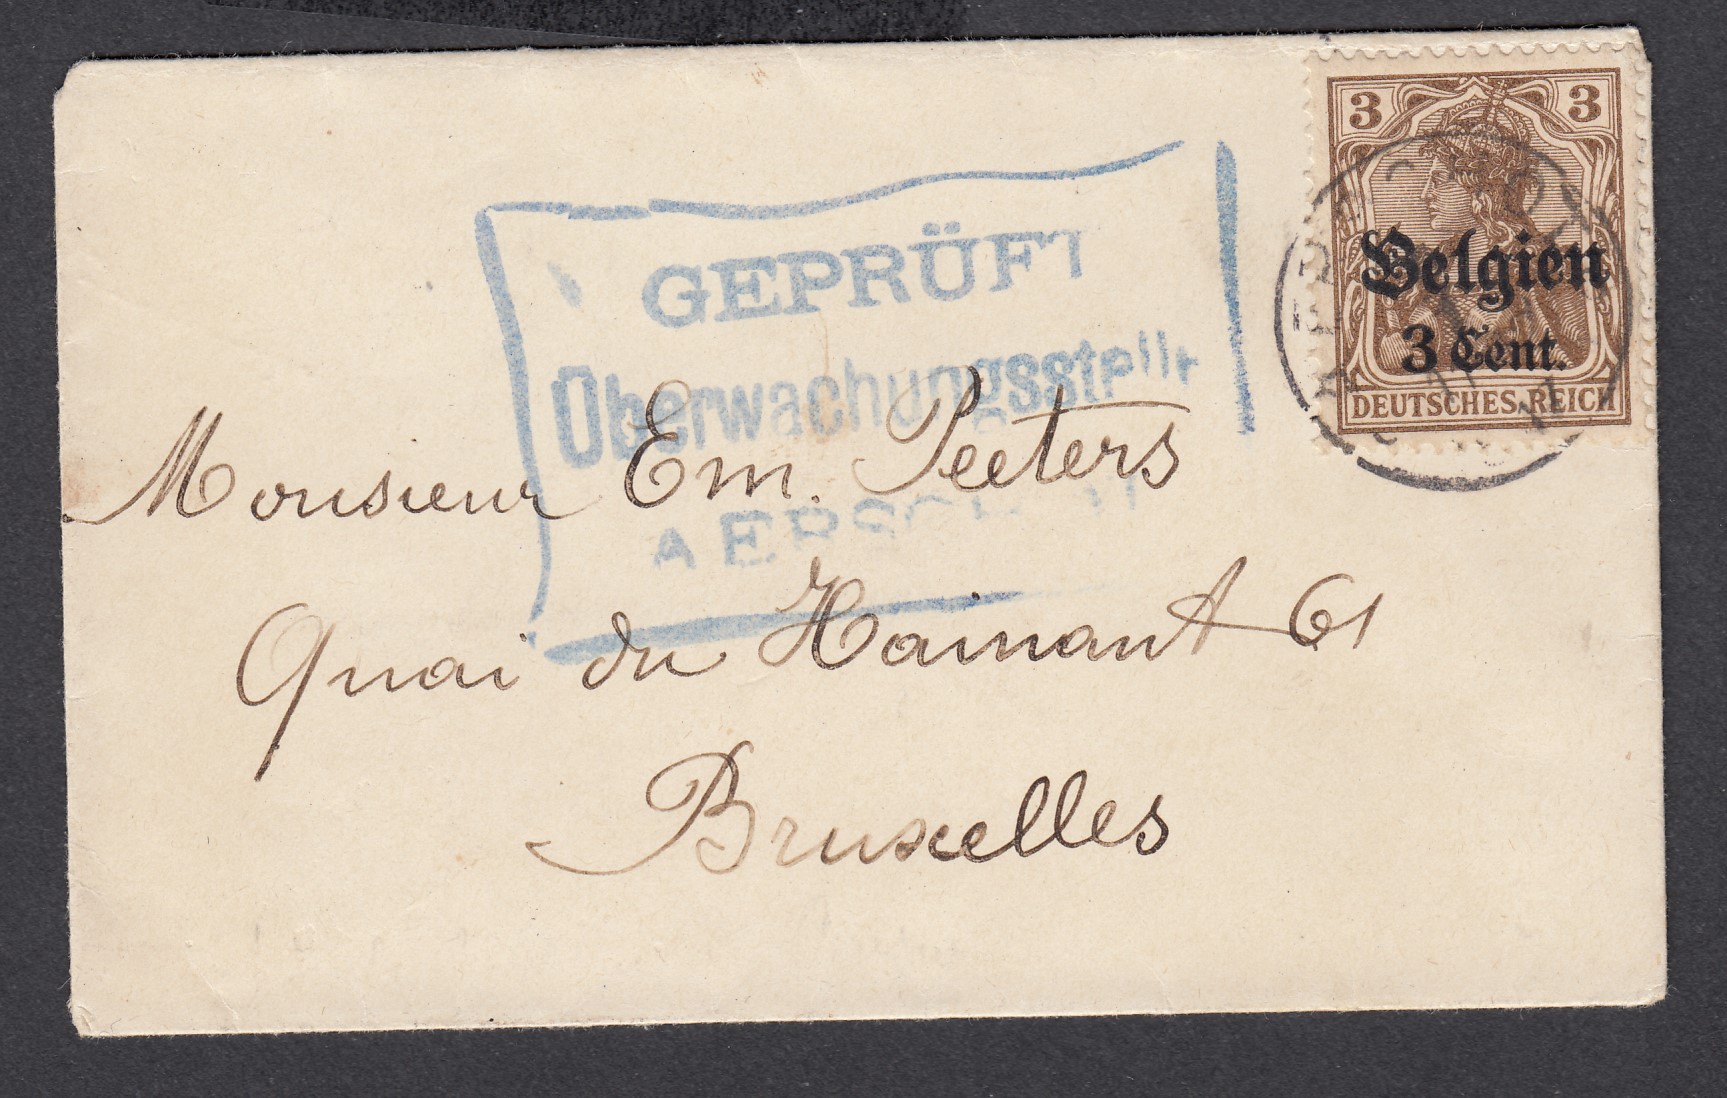 3 3
Belgien
3 Cent.
DEUTSCHES REICH
GEPRÜFT
Überwachungsstelle
AERSCHOT
Monsieur Em. Peeters
Quai du Hainaut 61
Bruxelles